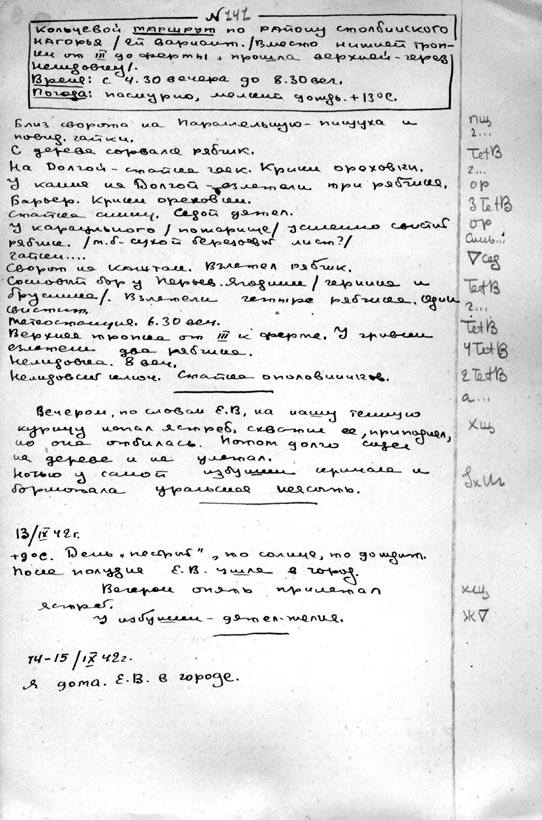 № 141
Кольцевой маршрут по району Столбинского
нагорья /ей вариант. /Вместо нижней троп-
ки от III до фермы, прошла верхней-через
Нелидовку/.
Время: с 4.30 вечера до 8.30 веч.
Погода: пасмурно, мелкий дождь. +13°С.
Близ сворота на пищуха и пщ
повид. гаички. г...
С дерева сорвался рябчик. TetB
На Долгой-стайка гаек. Крики ореховки. г... ор
У камня на Долгой-взлетели три рябчика. 3 TetB
Барьер. Крики ореховки. ор
Стайка синиц. Седой дятел. синь... ▽сед
У караульного /пожарище/ усиленно свистит
рябчик. /т.б-сухой березовый лист?/ TetB
гаички.... г...
Сворот на каштак. Взлетел рябчик. TetB
Сосновый бор у Перьев. Ягодник /черника и
брусника/. Взлетели четыре рябчика. Один 4 TetB
свистит.
Метеостанция. 6.30 веч.
Верхняя тропка от III к ферме. У гривки
взлетели два рябчика. 2 TetB
Нелидовка. 8 веч.
Нелидовский ключ. Стайка ополовничков. а...
Вечером, по словам Е.В, на нашу темную
курицу напал ястреб, схватил ее, приподнял, хщ
но она отбилась. Потом долго сидел
на дереве и не улетал.
Ночью у самой избушки кричала и
бормотала уральская неясыть.
13/IX 42г.
+9°С. День „пестрый", то солнце, то дождит.
После полудня Е.В. ушла в город.
Вечером опять прилетал хщ
ястреб.
У избушки-дятел-желна. Ж▽
14-15/IX 42г.
Я дома. Е.В. в городе.